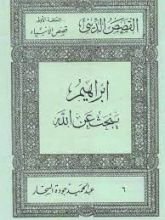 القصص الديني
قصص الأنبياء
إبراهيم
يبحث عن الله
عبد الحميد جودة السحار
٦